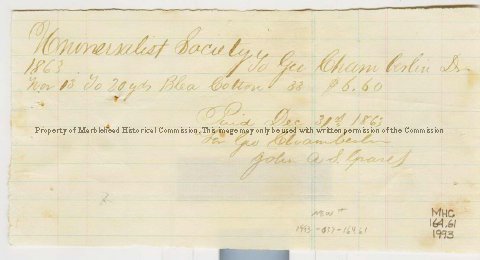 Universalist Society
To Geo Chamberlin Dr
1863
Nov 13 To 20 yds Blea Cotton 33 $6.60
Paid Dec 21st 1863
Property of Marblehead Historical Commission. This image may only be used with written permission of the commission
For Geo Chamberlin
John A S
MHC
164.61
1993